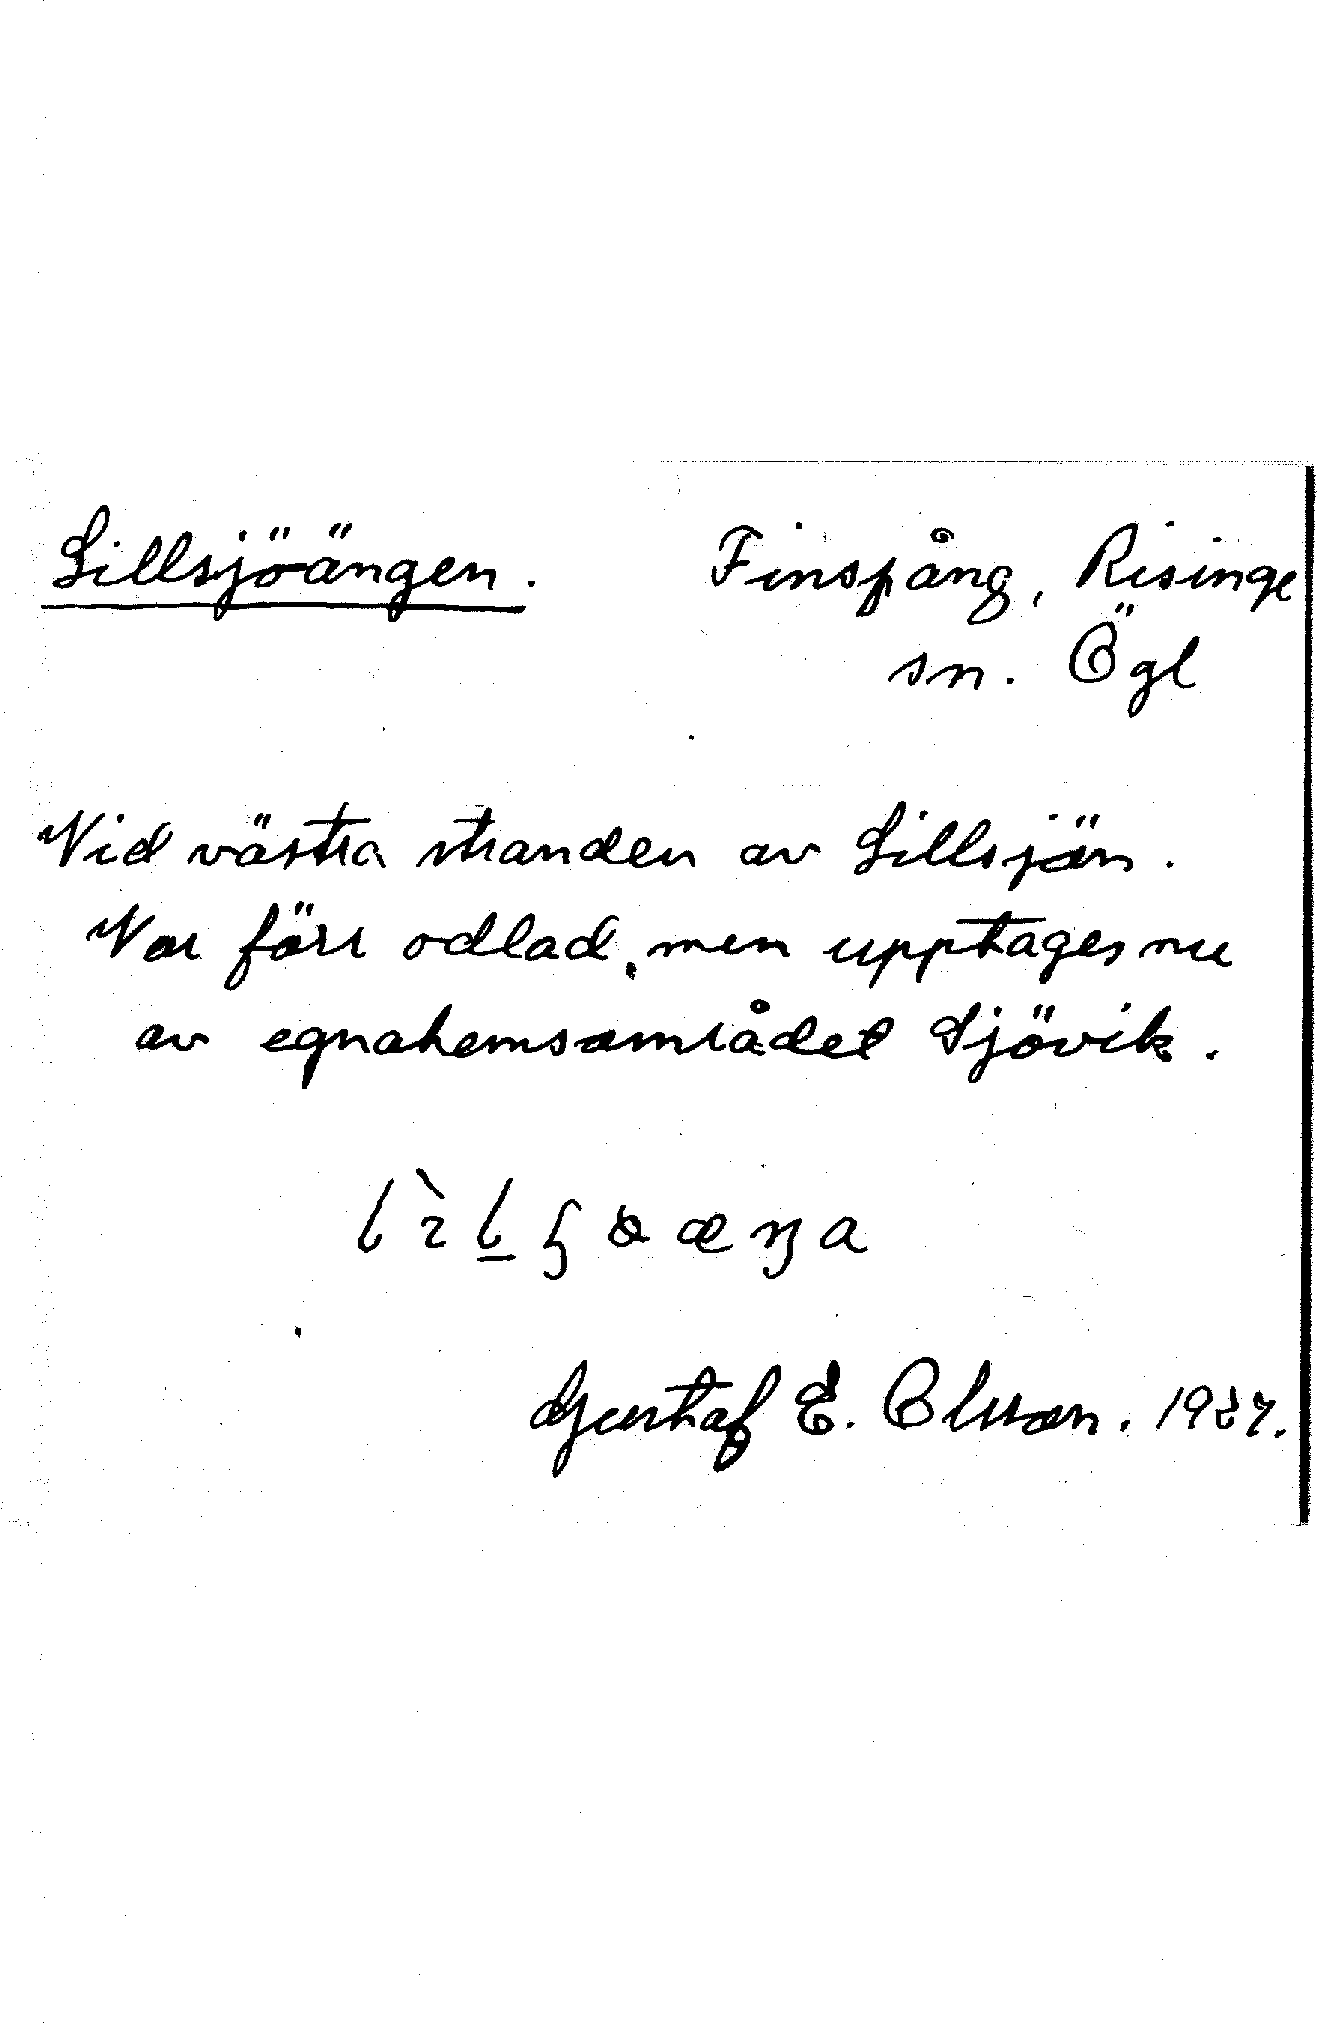 Lillsjöängen.
Finspång, Risinge
sn. Ögl
Vid västra stranden av Lillsjön.
Var förr odlad, men upptages nu
av egnahemsområdet Sjövik.
Gustaf E. Olsson.